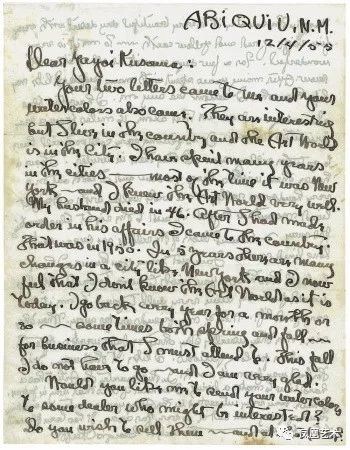 ABIQUIU, N.M.
12/4/55
Dear Yayoi Kusama:
Your two letters came to me and your
watercolors also came. They are interesting
but I live in the country and the Art World
is in the city. I have spent many years
in the cities — most of the time it was New
York — and I knew the Art World very well.
My husband died in 46. After I had made
order in his affairs I came to the country.
That was in 1950. In 5 years there are many
changes in a city like New York and I now
feel that I dont know the Art World as it is
today. I go back every year for a month or
so — sometimes both spring and fall —
for business that I must attend to. This fall
I do not have to go — and I am very glad.
Would you like me to send your watercolors
to some dealer who might be interested?
Do you wish to sell them — and at